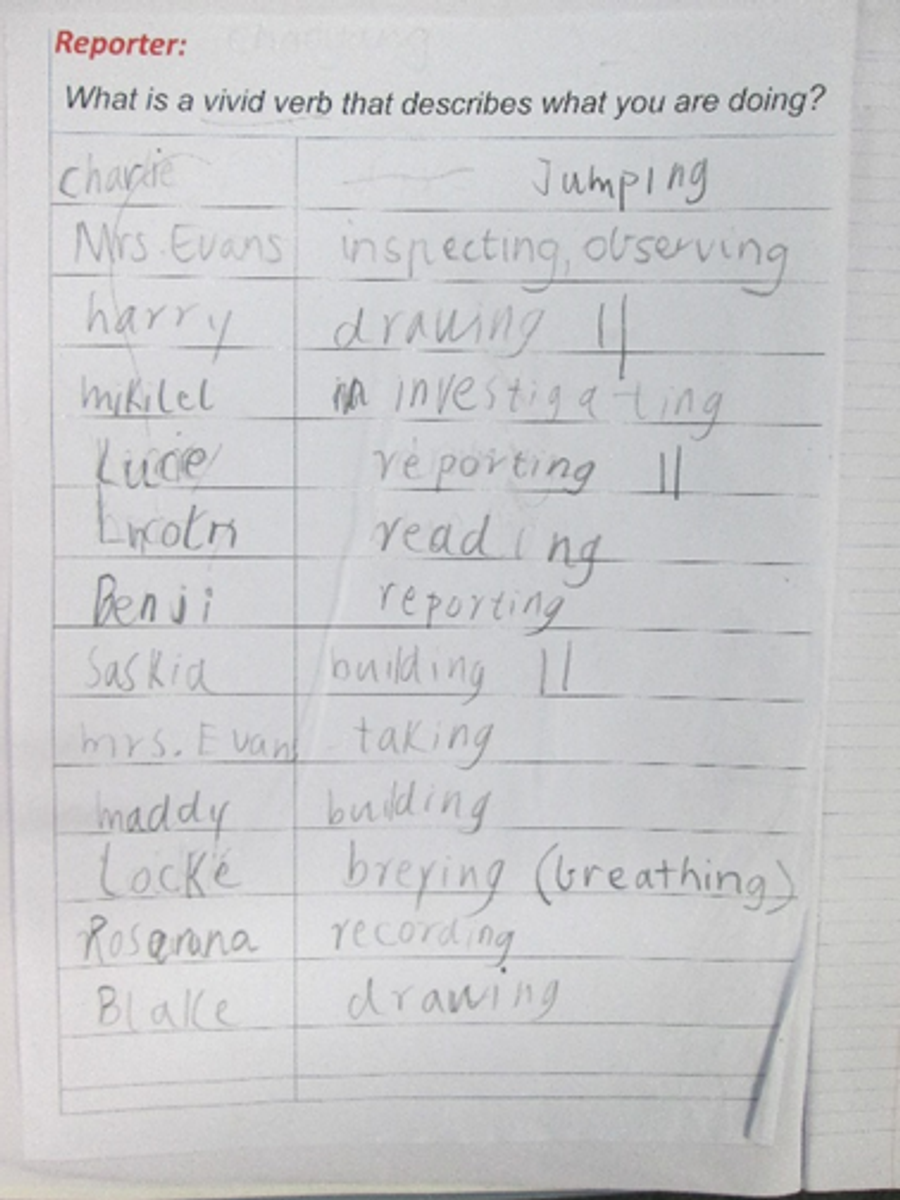 Reporter:
What is a vivid verb that describes what you are doing?
Charlie Jumping
Mrs. Evans inspecting, observing
harry drawing ||
mikilel investigating
Lucie reporting ||
reading
Benji reporting
Saskia building ||
mrs. Evans taking
maddy building
Locke breying (breathing)
recording
Blake drawing